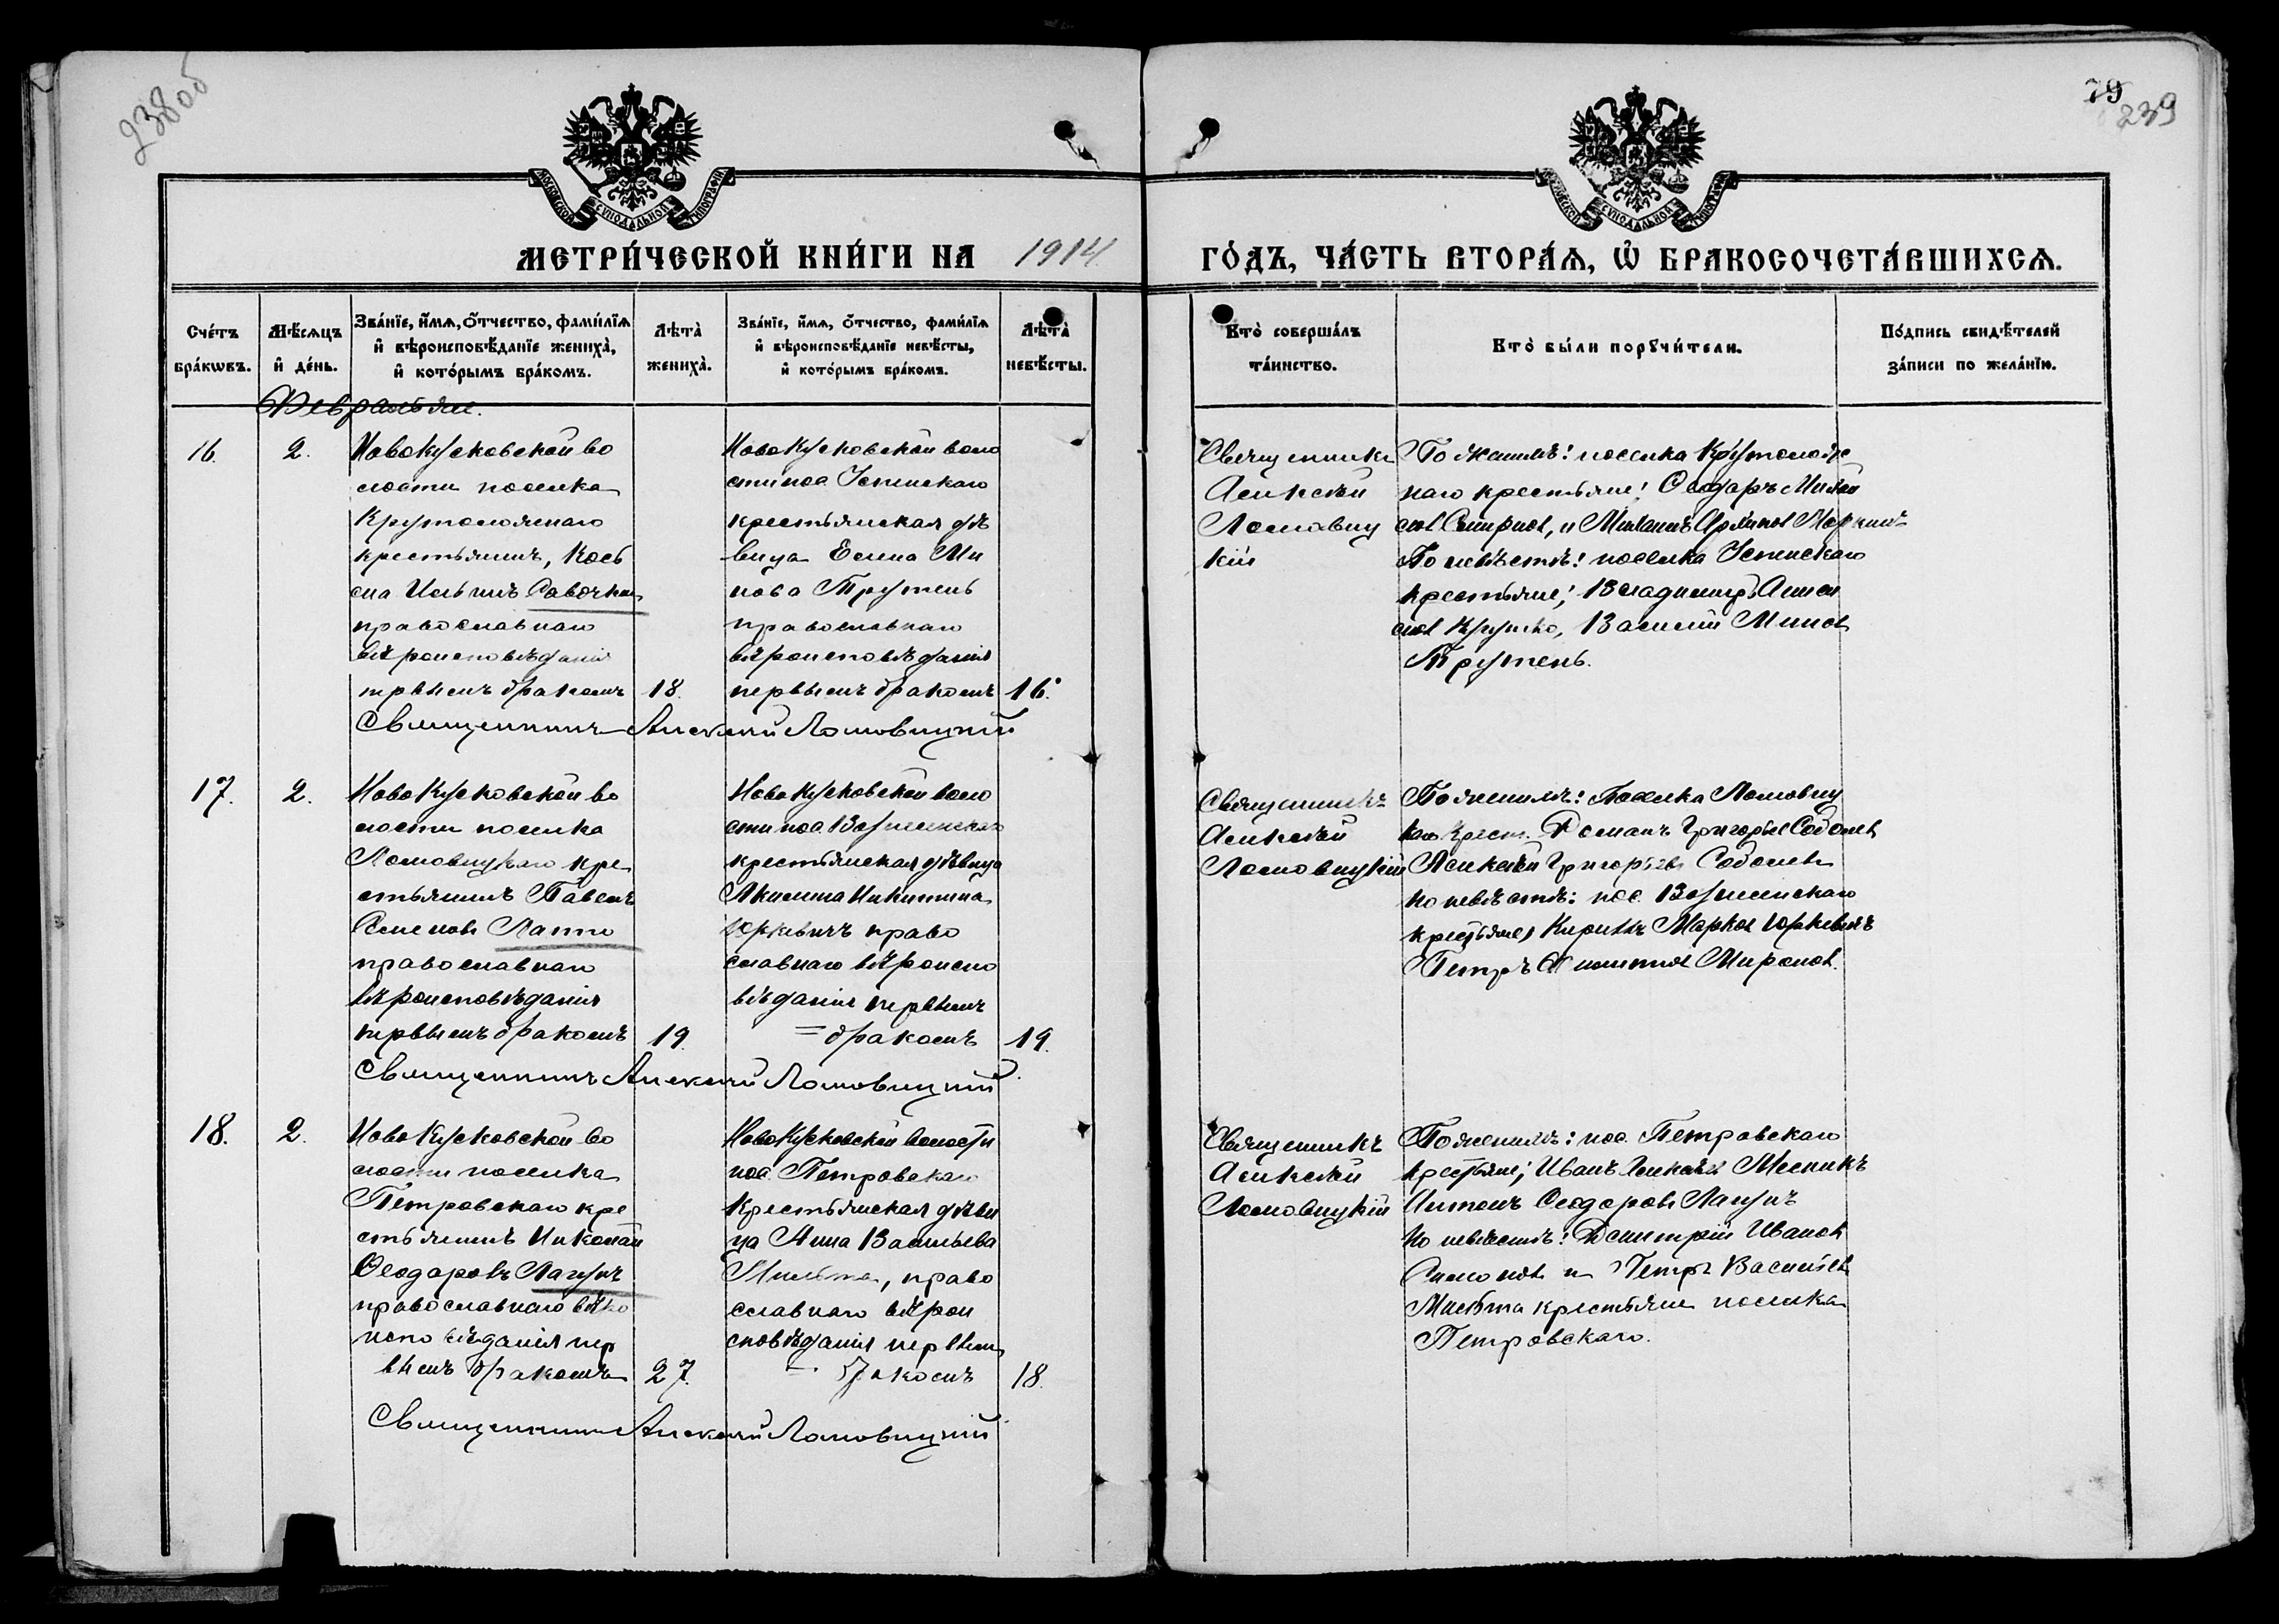 238об
79
239
МОСКОВСКОЙ СѴНОДАЛЬНОЙ ТИПОГРАФІИ
МОСКОВСКОЙ СѴНОДАЛЬНОЙ ТИПОГРАФІИ
МЕТРИ́ЧЕСКОЙ КНИ́ГИ НА 1914
ГО́ДЪ, ЧА́СТЬ ВТОРА́Ѧ, Ѽ БРАКОСОЧЕТА́ВШИХСѦ.
Сче́тъ бра́кѡвъ.
Мѣ́сѧцъ и҆ де́нь.
Зва́нїе, и҆́мѧ, ѻ҆́тчество, фами́лїѧ и҆ вѣроисповѣ́данїе жениха̀, и҆ кото́рымъ бра́комъ.
Лѣта̀ жениха̀.
Зва́нїе, и҆́мѧ, ѻ҆́тчество, фами́лїѧ и҆ вѣроисповѣ́данїе невѣ́сты, и҆ кото́рымъ бра́комъ.
Лѣта̀ невѣ́сты.
Кто̀ соверша́лъ та́инство.
Кто̀ бы́ли порꙋчи́тели.
По́дпись свидѣ́телей за́писи по жела́нїю.
Февральъ
16.
2.
НовоКусковской во
лости поселка
Крутоложнаго
крестьянинъ, Кось
ма Ильинъ Савочкин
православнаго
вѣроисповѣданія
первымъ бракомъ
18.
НовоКусковской воло
сти пос Успенскаго
крестьянская дѣ
вица Елена Ми
нова Трутень
православнаго
вѣроисповѣданія
первымъ бракомъ
16.
Священникъ
Алексѣй
Ломовиц
кій
По женихѣ: поселка Крутолож
наго крестьяне: Ѳеодоръ
Смирнов, и Михаилъ
По невѣстѣ: поселка Успенскаго
крестьяне; Владимиръ
Василій Минов
Трутень.
Священникъ Алексѣй Ломовицкій
17.
2.
НовоКусковской во
лости поселка
Ломовицкаго кре
стьянинъ Павелъ
Семеновъ Лапто
православнаго
вѣроисповѣданія
первымъ бракомъ
19.
НовоКусковской воло
сти пос. Вознесенскаго
крестьянская дѣвица
Акилина Никитина
Юркевичъ право
славнаго вѣроиспо
вѣданія первымъ
= бракомъ
19.
Священникъ
Алексѣй
Ломовицкій
По женихѣ: Поселка Ломовиц
каго Крест. Романъ Григорьев Соболев
Алексѣй Григорьевъ Соболевъ
по невѣстѣ: пос. Вознесенскаго
крестьяне, Кириллъ Марков Юркевичъ
Петръ Миронов.
Священникъ Алексѣй Ломовицкій
18.
2.
НовоКусковской во
лости поселка
Петровскаго кре
стьянинъ Николай
Ѳеодоровъ Лагунъ
православнаго вѣро
исповѣданія пер
вымъ бракомъ
27.
НовоКусковской волости
пос. Петровскаго
Крестьянская дѣви
ца Анна Васильева
Мильта, право
славнаго вѣрои
сповѣданія первым
= бракомъ
18.
Священникъ
Алексѣй
Ломовицкій
По женихѣ: пос. Петровскаго
крестьяне; Иванъ Алексѣев Мельникъ
Антонъ Ѳеодоровъ Лагунъ
по невѣстѣ: Димитрій Иванов
Симонов и Петръ Васильев
Мильта крестьяне поселка
Петровскаго.
Священникъ Алексѣй Ломовицкій